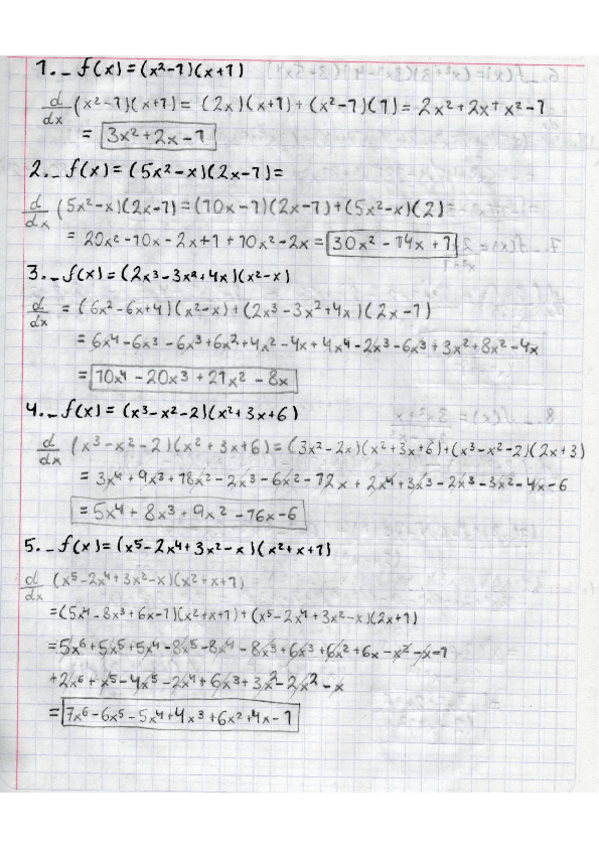 1._ f(x)=(x²-1)(x+1)
d/dx (x²-1)(x+1) = (2x)(x+1)+(x²-1)(1) = 2x²+2x+x²-1
= 3x²+2x-1
2._ f(x)=(5x²-x)(2x-1)=
d/dx (5x²-x)(2x-1)=(10x-1)(2x-1)+(5x²-x)(2)
= 20x²-10x-2x+1+10x²-2x= 30x²-14x+1
3._ f(x)=(2x³-3x²+4x)(x²-x)
d/dx =(6x²-6x+4)(x²-x)+(2x³-3x²+4x)(2x-1)
= 6x⁴-6x³-6x³+6x²+4x²-4x+4x⁴-2x³-6x³+3x²+8x²-4x
= 10x⁴-20x³+21x²-8x
4._ f(x)=(x³-x²-2)(x²+3x+6)
d/dx (x³-x²-2)(x²+3x+6)=(3x²-2x)(x²+3x+6)+(x³-x²-2)(2x+3)
= 3x⁴+9x³+18x²-2x³-6x²-12x+2x⁴+3x³-2x³-3x²-4x-6
= 5x⁴+8x³+9x²-16x-6
5._ f(x)=(x⁵-2x⁴+3x²-x)(x²+x+1)
d/dx (x⁵-2x⁴+3x²-x)(x²+x+1)=
=(5x⁴-8x³+6x-1)(x²+x+1)+(x⁵-2x⁴+3x²-x)(2x+1)
=5x⁶+5x⁵+5x⁴-8x⁵-8x⁴-8x³+6x³+6x²+6x-x²-x-1
+2x⁶+x⁵-4x⁵-2x⁴+6x³+3x²-2x²-x
= 7x⁶-6x⁵-5x⁴+4x³+6x²+4x-1